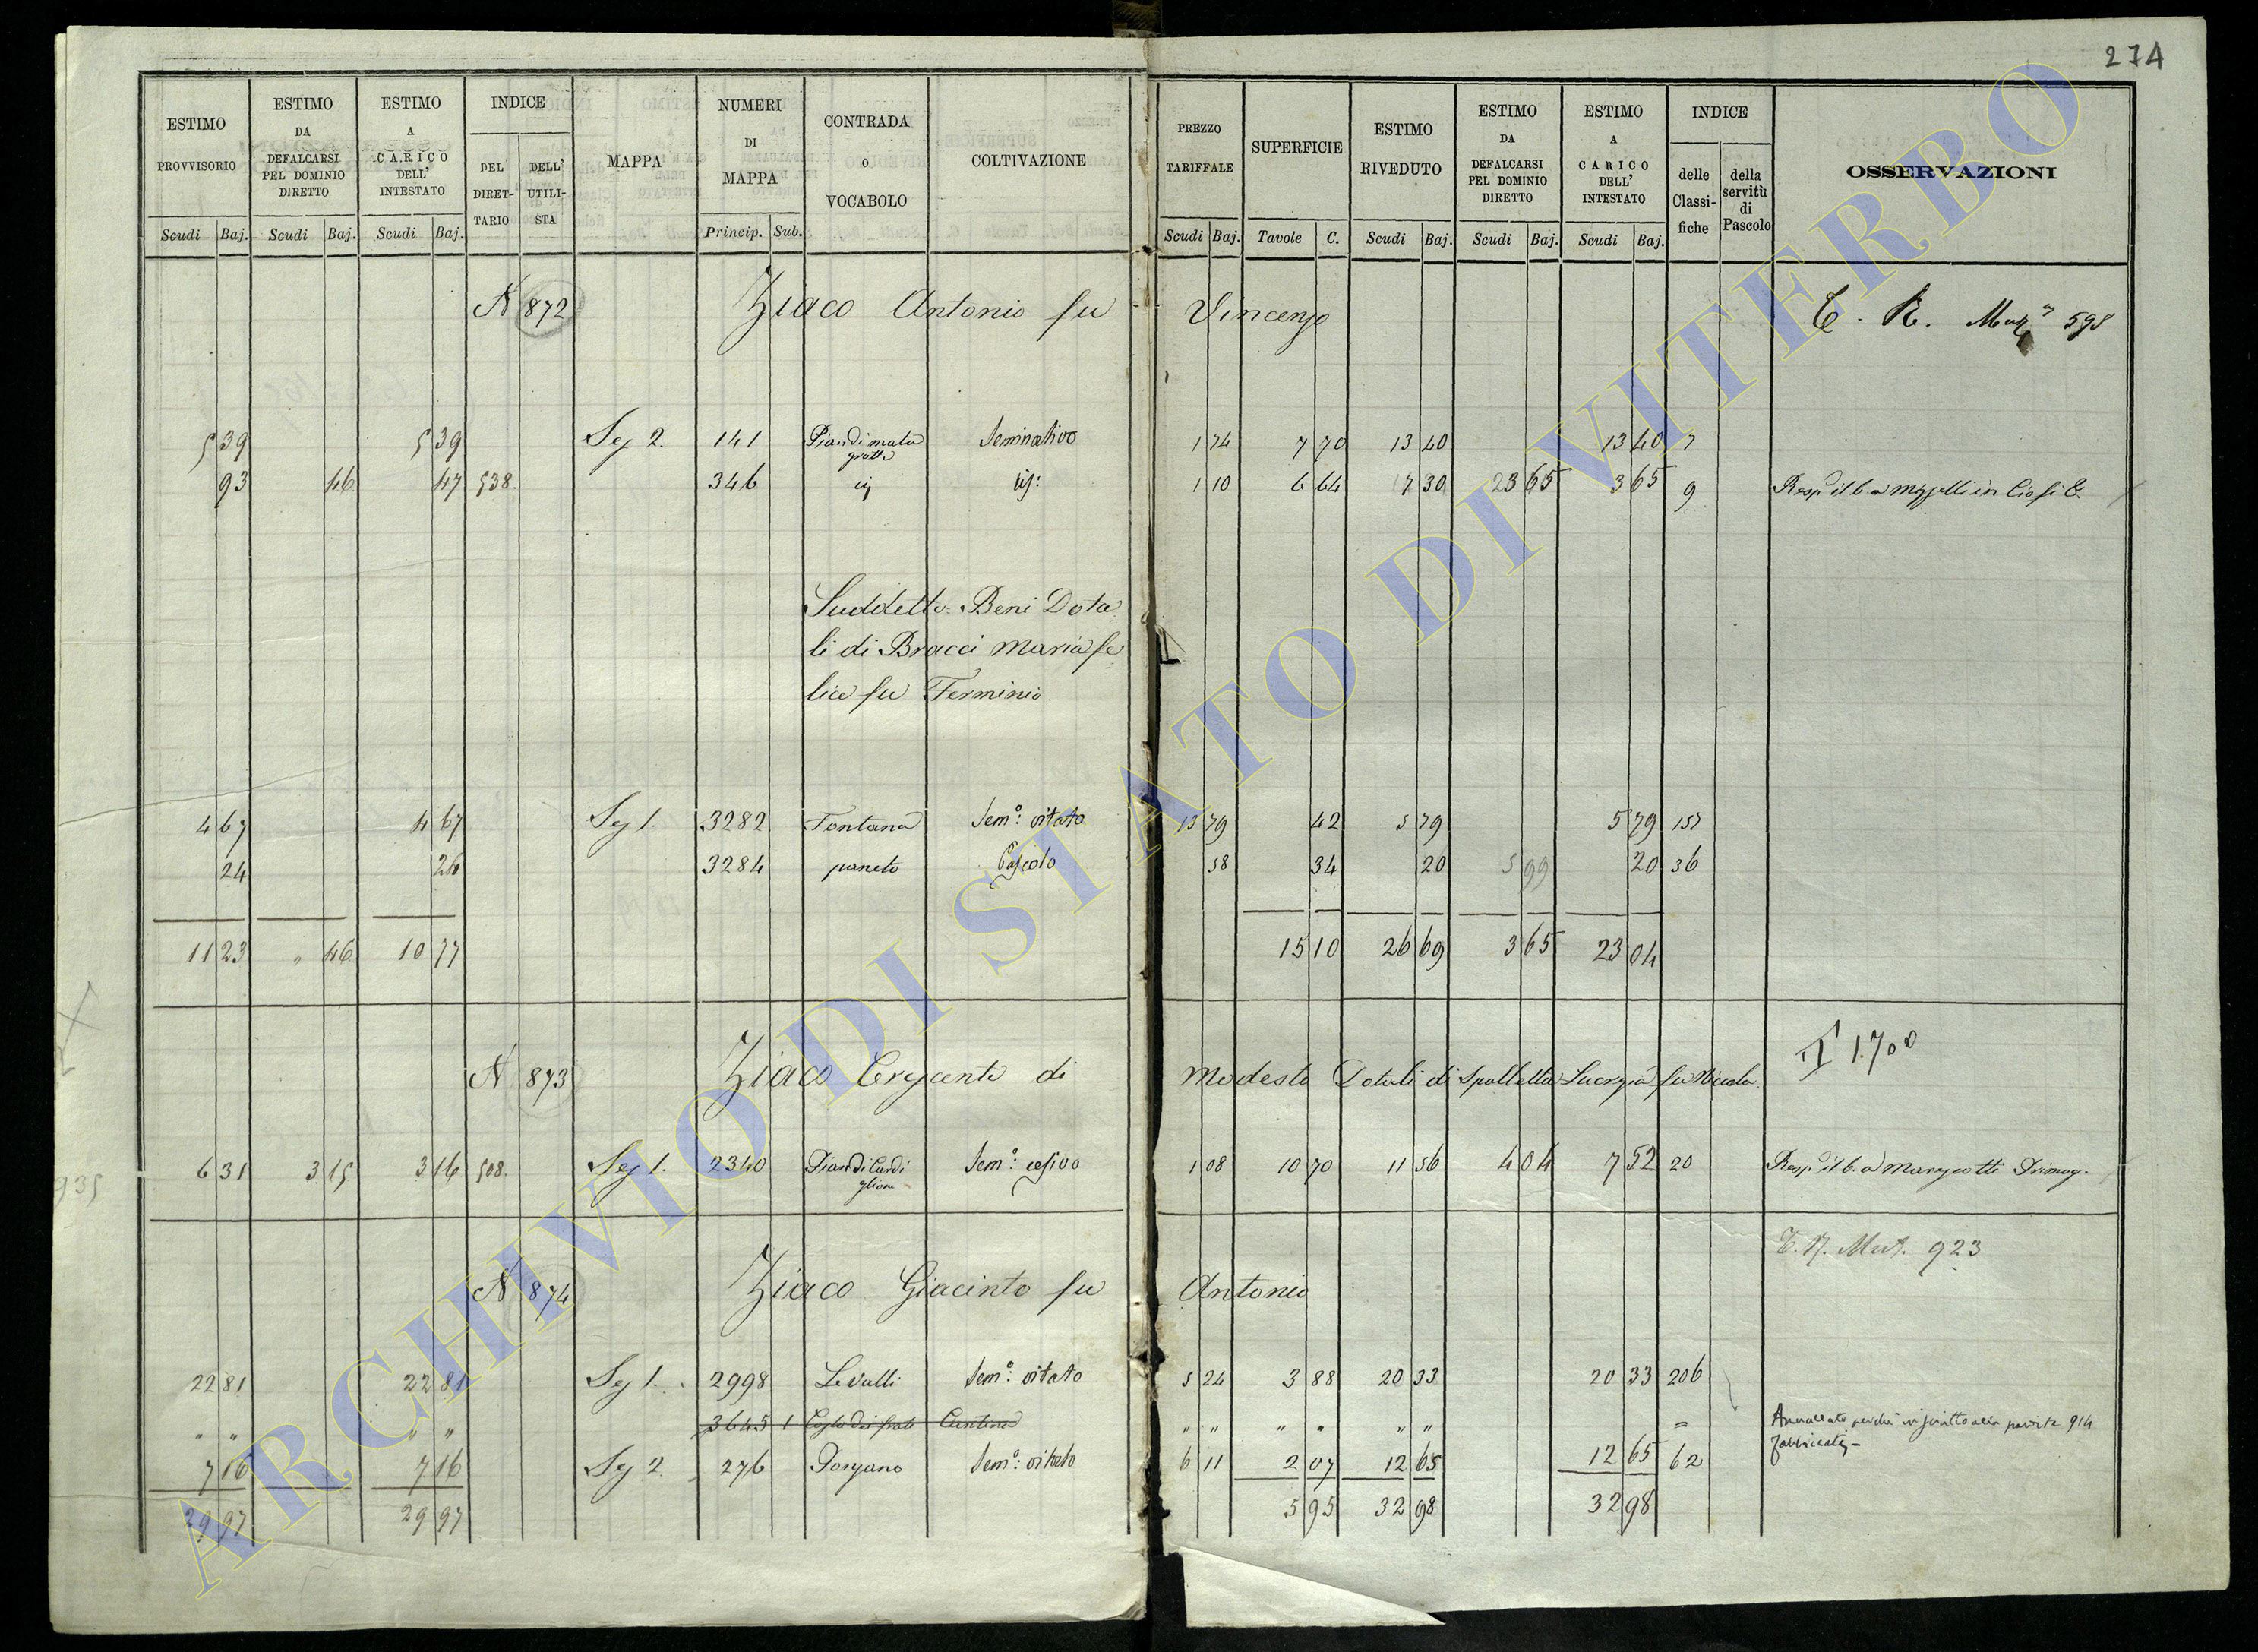 274
ESTIMO PROVVISORIO
ESTIMO DA DEFALCARSI PEL DOMINIO DIRETTO
ESTIMO A CARICO DELL' INTESTATO
INDICE
DEL DIRETTARIO
DELL' UTILISTA
MAPPA
NUMERI DI MAPPA
CONTRADA O VOCABOLO
COLTIVAZIONE
PREZZO TARIFFALE
SUPERFICIE
ESTIMO RIVEDUTO
ESTIMO DA DEFALCARSI PEL DOMINIO DIRETTO
ESTIMO A CARICO DELL' INTESTATO
INDICE
delle Classifiche
della servitù di Pascolo
OSSERVAZIONI
Scudi Baj. Scudi Baj. Scudi Baj. Princip. Sub. Scudi Baj. Tavole C. Scudi Baj. Scudi Baj. Scudi Baj.
N 872 Ziaco Antonio fu Vincenzo 598
5 39 5 39 Sez 2. 141 Seminativo 1 74 7 70 13 40 13 40 7
93 46 47 538. 346 1 10 6 64 7 30 3 65 3 65 9
Suddetto = Beni Dota
li di Bracci Maria fe
lice fu Ferminio
4 67 4 67 Sez 1. 3282 Fontana Sem.º vitato 13 79 42 5 79 5 79 157
24 24 3284 Pascolo 58 34 20 5 99 20 36
11 23 " 46 10 77 15 10 26 69 3 65 23 04
N 873 Ziaco Crescente di Modesto Dotali di Spalletta Lucrezia fu Nicola
6 31 3 15 3 16 508. Sez 1. 2340 Sem.º 1 08 10 70 11 56 4 04 7 52 20
923
N 874 Ziaco Giacinto fu Antonio
22 81 22 81 Sez 1. 2998 Le Valli Sem.º vitato 5 24 3 88 20 33 20 33 206
" " " " 3645 1 Cantina " " " " " " = Annullato perchè 914
7 16 7 16 Sez 2. 276 Sem.º vitato 6 11 2 07 12 65 12 65 62
29 97 29 97 5 95 32 98 32 98
ARCHIVIO DI STATO DI VITERBO